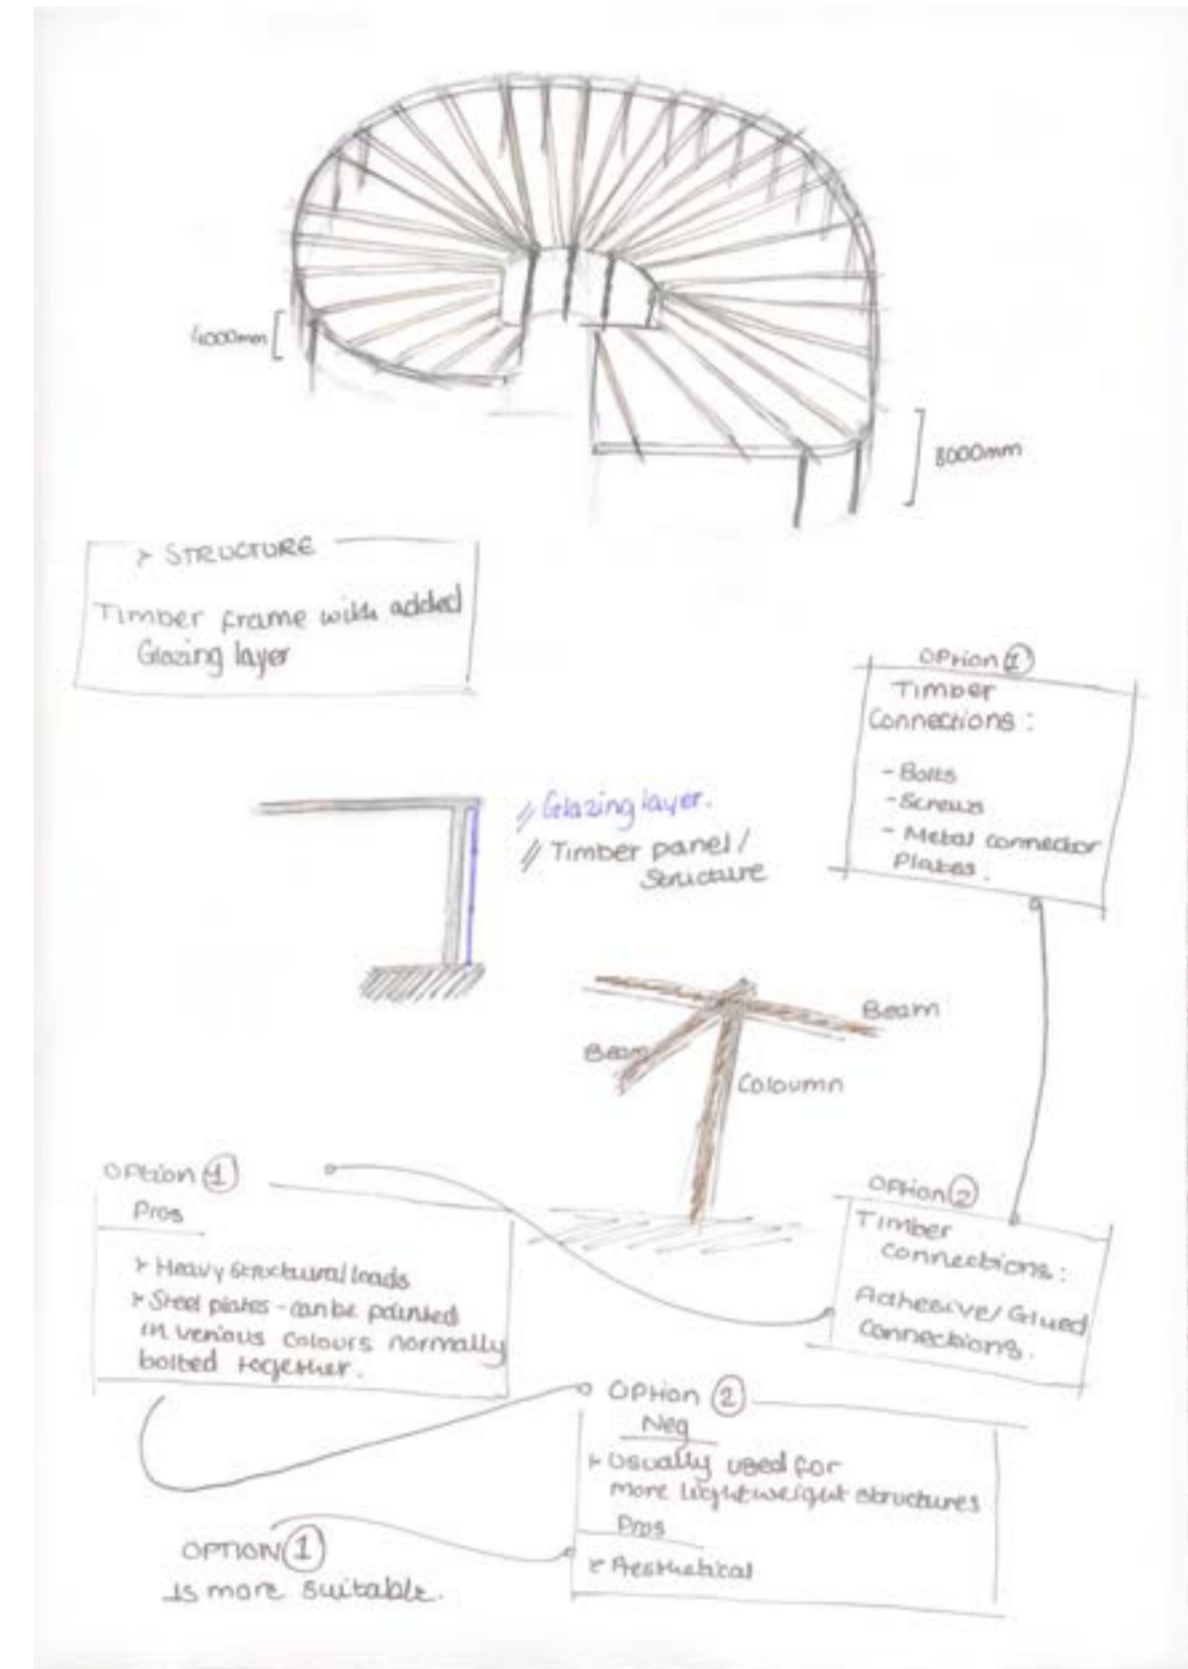 4000mm
8000mm
STRUCTURE
Timber frame with added
Glazing layer
OPtion 1
Timber
Connections :
- Bolts
- Screws
- Metal connector
Plates.
// Glazing layer.
// Timber panel /
Structure
Beam
Beam
Coloumn
OPtion 1
Pros
Heavy structural loads
Steel plates - can be painted
in verious colours normally
bolted together.
OPtion 2
Timber
connections :
Adhesive/ Glued
connections.
OPtion 2
Neg
Usually used for
more lightweight structures
Pros
Aesthetical
OPTION 1
is more suitable.